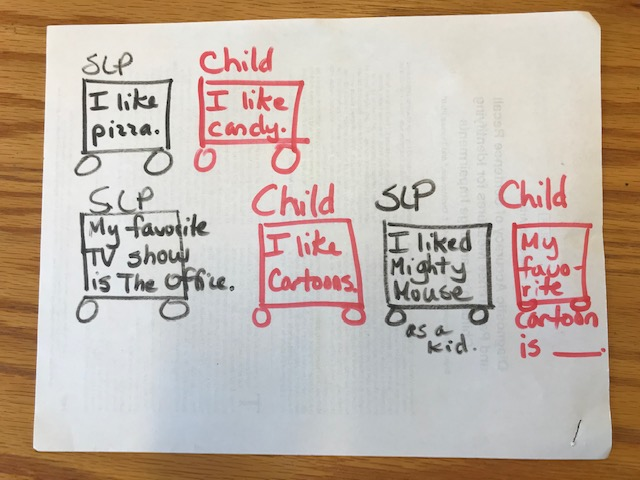 SLP
I like
pizza.
Child
I like
candy.
SLP
My favorite
TV show
is The Office.
Child
I like
Cartoons.
SLP
I liked
Mighty
Mouse
as a
kid.
Child
My
favo-
rite
cartoon
is ___.